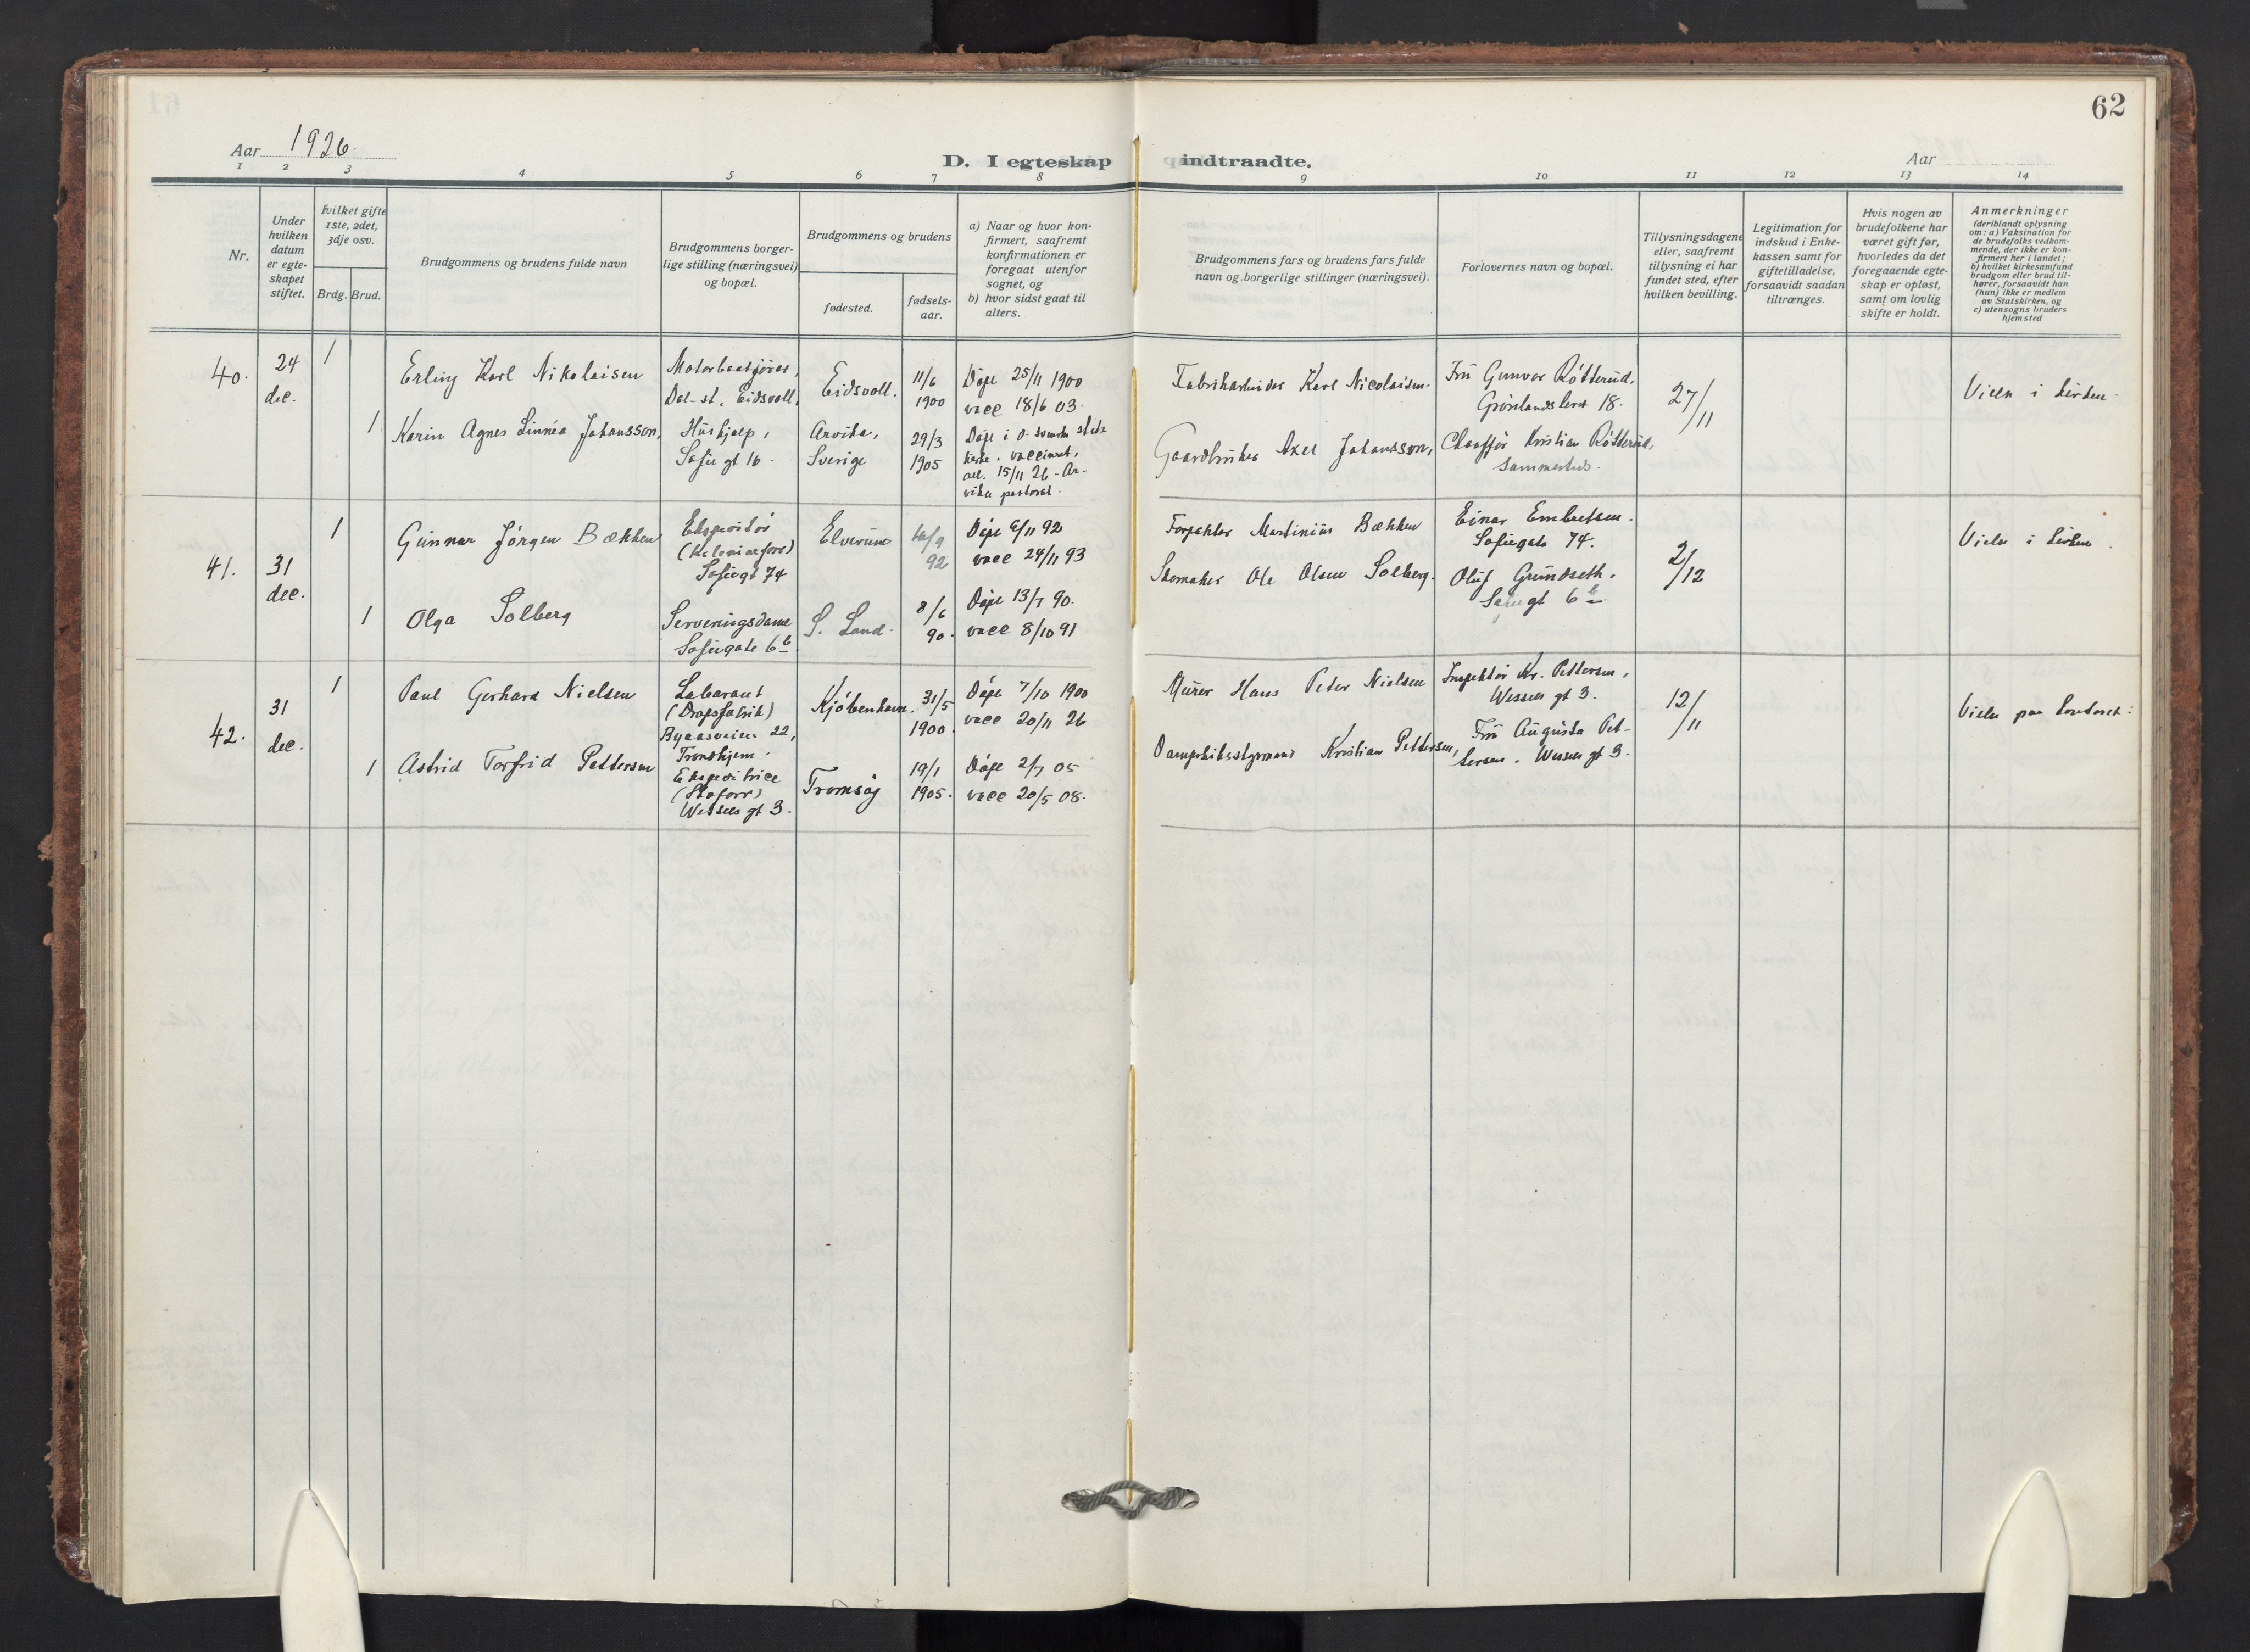 62
Aar 1926.
D. I egteskap indtraadte.
Aar
1 2 3 4 5 6 7 8 9 10 11 12 13 14
Nr.
Under
hvilken
datum
er egte-
skapet
stiftet.
hvilket gifte
1ste, 2det,
3dje osv.
Brdg. Brud.
Brudgommens og brudens fulde navn
Brudgommens borger-
lige stilling (næringsvei)
og bopæl.
Brudgommens og brudens
fødested.
fødsels-
aar.
a) Naar og hvor kon-
firmert, saafremt
konfirmationen er
foregaat utenfor
sognet, og
b) hvor sidst gaat til
alters.
Brudgommens fars og brudens fars fulde
navn og borgerlige stillinger (næringsvei).
Forlovernes navn og bopæl.
Tillysningsdagene
eller, saafremt
tillysning ei har
fundet sted, efter
hvilken bevilling.
Legitimation for
indskud i Enke-
kassen samt for
giftetilladelse,
forsaavidt saadan
tiltrænges.
Hvis nogen av
brudefolkene har
været gift før,
hvorledes da det
foregaaende egte-
skap er opløst,
samt om lovlig
skifte er holdt.
Anmerkninger
(deriblandt oplysning
om: a) Vaksination for
de brudefolks vedkom-
mende, der ikke er kon-
firmert her i landet;
b) hvilket kirkesamfund
brudgom eller brud til-
hører, forsaavidt han
(hun) ikke er medlem
av Statskirken, og
c) utensogns bruders
hjemsted
40.
24
dec.
1
Erling Karl Nikolaisen
Dal st. Eidsvoll.
Eidsvoll.
11/6
1900
Døpt 25/11 1900
vacc 18/6 03.
Fabrikarbeider Karl Nicolaisen.
Fru Gunvor Røtterud,
Grønlandsleret 18.
27/11
Vielse i kirken.
1
Karin Agnes Linnéa Johansson,
Hushjælp,
Sofie gt 16.
Arvika,
Sverige
29/3
1905
Døpt i d. svenske stats
kirke. vaccineret,
att. 15/11 26 - Ar-
vika pastorat.
Gaardbruker Axel Johansson,
Chauffør Kristian Røtterud,
sammesteds.
41.
31
dec.
1
Gunnar Jörgen Bækken
Ekspeditör
(Kolonialforr)
Sofiegt 74
Elverum
16/9
92
Døpt 6/11 92
vacc 24/11 93
Forpakter Martinius Bækken
Einar Embretsen.
Sofiegate 74.
2/12
Vielse i kirken.
1
Olga Solberg
Serveringsdame
Sofiegate 6 b
S. Land.
8/6
90.
Døpt 13/7 90.
vacc 8/10 91
Skomaker Ole Olsen Solberg.
Oluf Grundseth.
Sofiegt 6 b
42.
31
dec.
1
Paul Gerhard Nielsen
Laborant
(Dropsfabrik)
Byaasveien 22,
Trondhjem.
Kjøbenhavn.
31/5
1900.
Døpt 7/10 1900
vacc 20/11 26
Murer Hans Peter Nielsen
Inspektør Kr. Pettersen,
Wessels gt 3.
12/11
Vielse paa kontoret.
1
Astrid Torfrid Pettersen
Ekspeditrice
(Skoforr)
Wessels gt 3.
Tromsøy
19/1
1905.
Døpt 2/7 05
vacc 20/5 08.
Dampskibsstyrmand Kristian Pettersen,
Fru Augusta Pet-
tersen. Wessels gt 3.